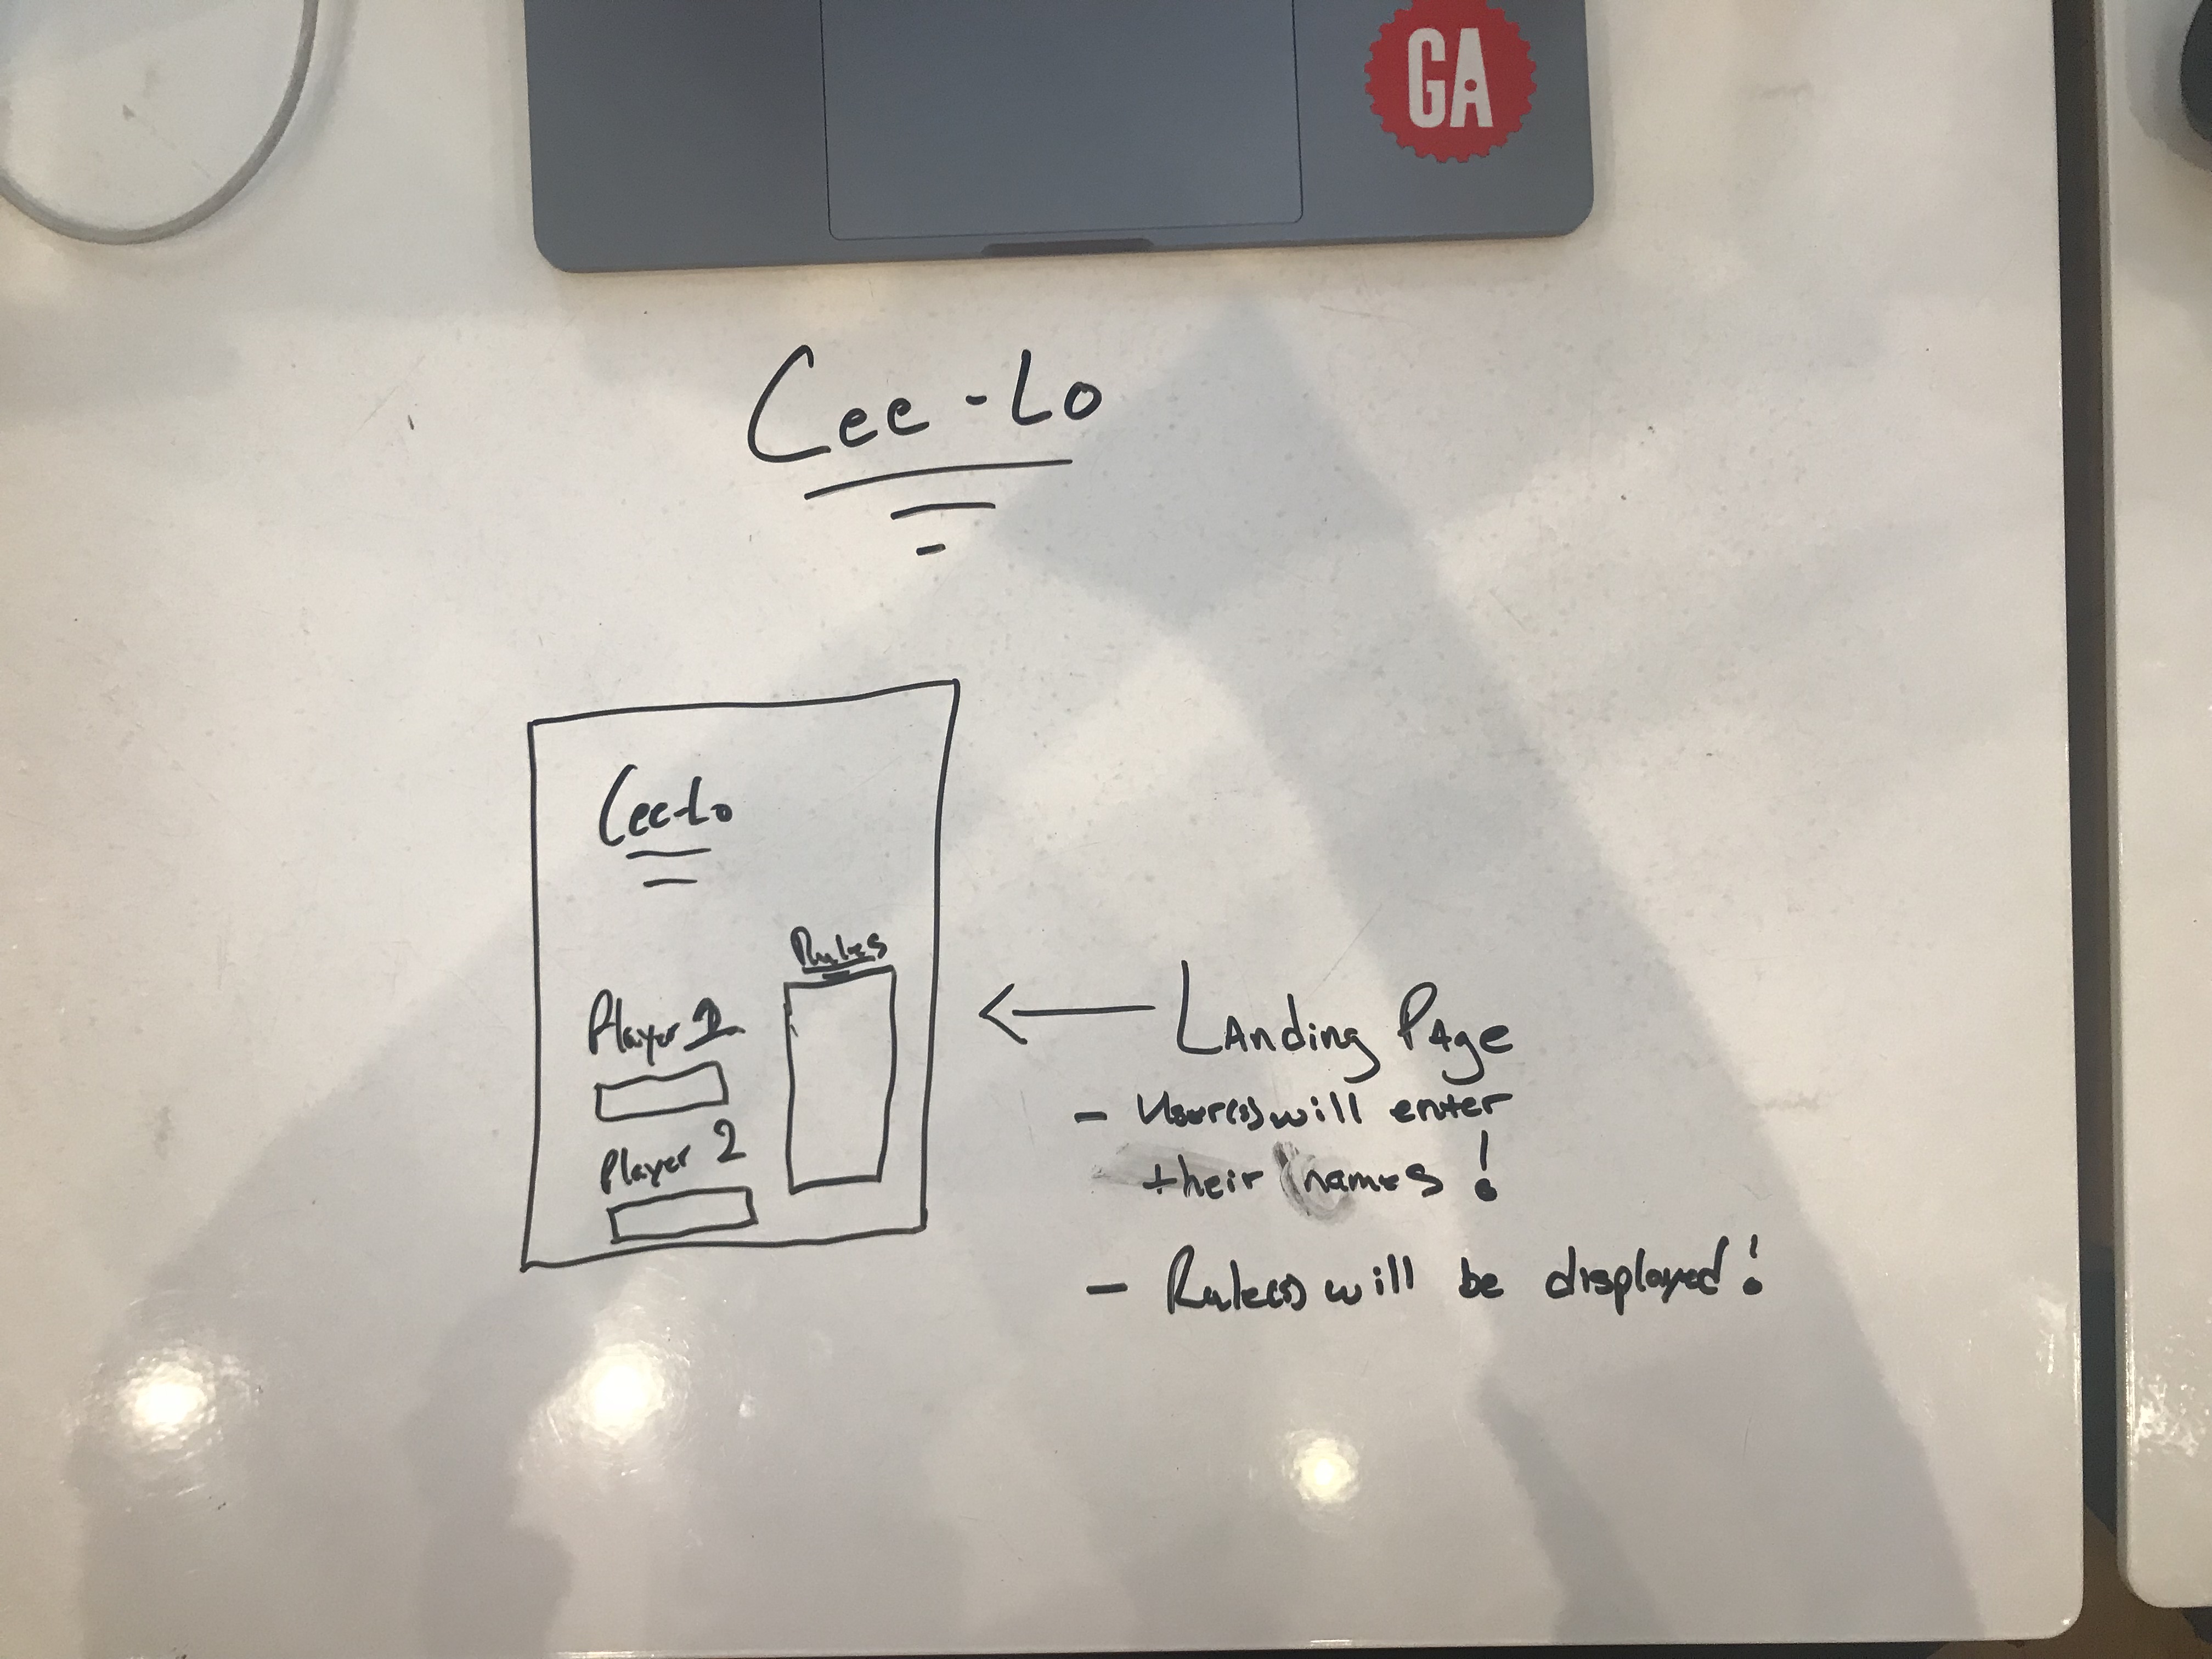 Cee-Lo
Cee-Lo
Player 1
Player 2
Rules
Landing Page
- User(s) will enter
their names!
- Rule(s) will be displayed!
GA